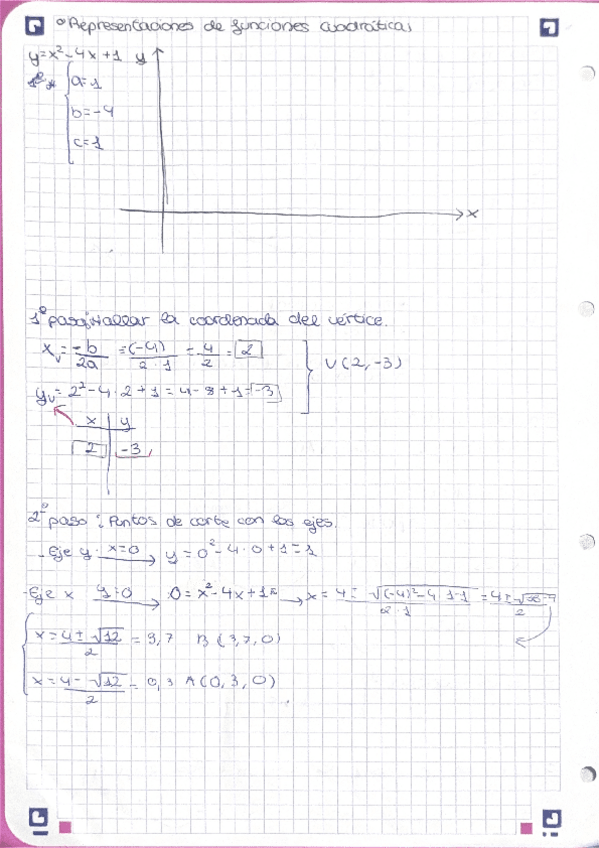 Representaciones de funciones cuadráticas
y=x²-4x+1 y
a=1
b=-4
c=1
x
1º paso: Hallar la coordenada del vértice.
Xv = -b/2a = -(-4)/2·1 = 4/2 = 2
V(2, -3)
yv = 2²-4·2+1 = 4-8+1 = -3
x y
2 -3
2º paso: Puntos de corte con los ejes.
-Eje y x=0 → y = 0²-4·0+1=1
-Eje x y=0 → 0=x²-4x+1 → x = 4± √(-4)²-4·1·1/2·1 = 4±
x = 4± √12/2 = 3,7 B(3,7,0)
x = 4- √12/2 = 0,3 A(0,3,0)